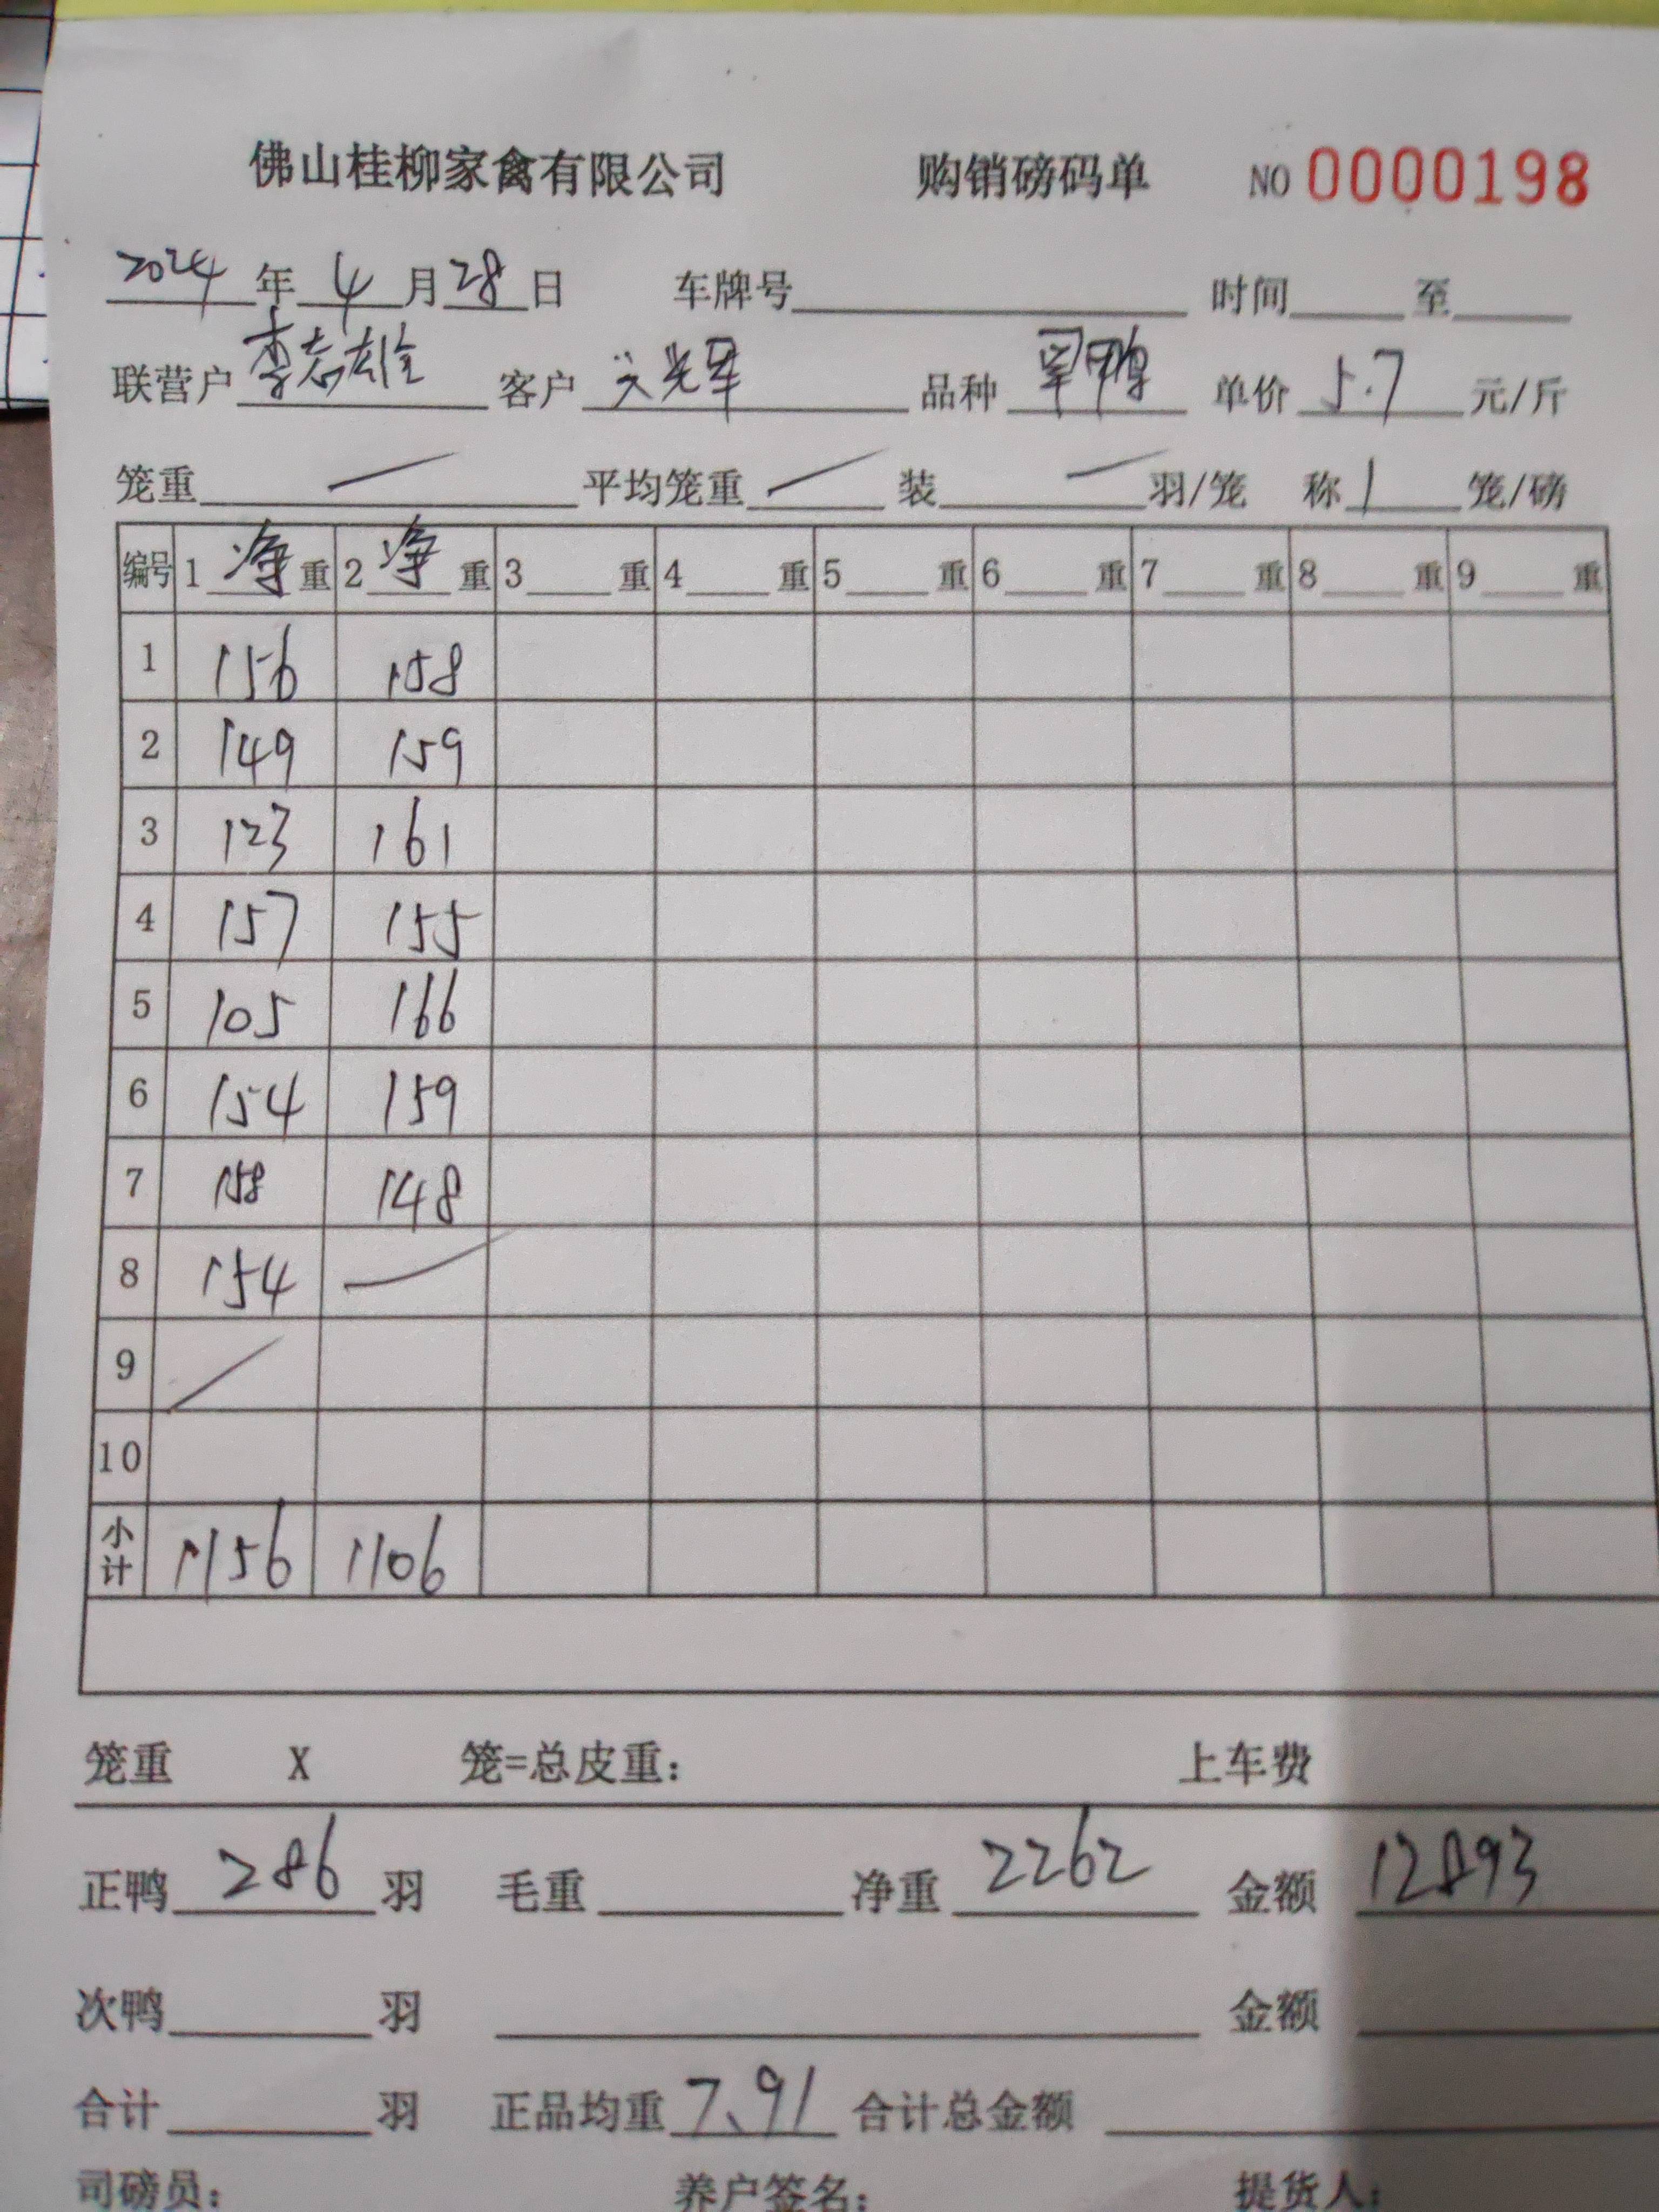 佛山桂柳家禽有限公司 购销磅码单 NO 0000198
2024 年 4 月 28 日 车牌号 时间 至
联营户 李志雄 客户 光军 品种 鸭 单价 5.7 元/斤
笼重 — 平均笼重 — 装 — 羽/笼 称 1 笼/磅
编号 1 净 重 2 净 重 3 重 4 重 5 重 6 重 7 重 8 重 9 重
1 156 158
2 149 159
3 123 161
4 157 155
5 105 166
6 154 159
7 158 148
8 154 —
9 /
10
小计 1156 1106
笼重 X 笼=总皮重: 上车费
正鸭 286 羽 毛重 净重 2262 金额 12893
次鸭 羽 金额
合计 羽 正品均重 7.91 合计总金额
司磅员: 养户签名: 提货人: